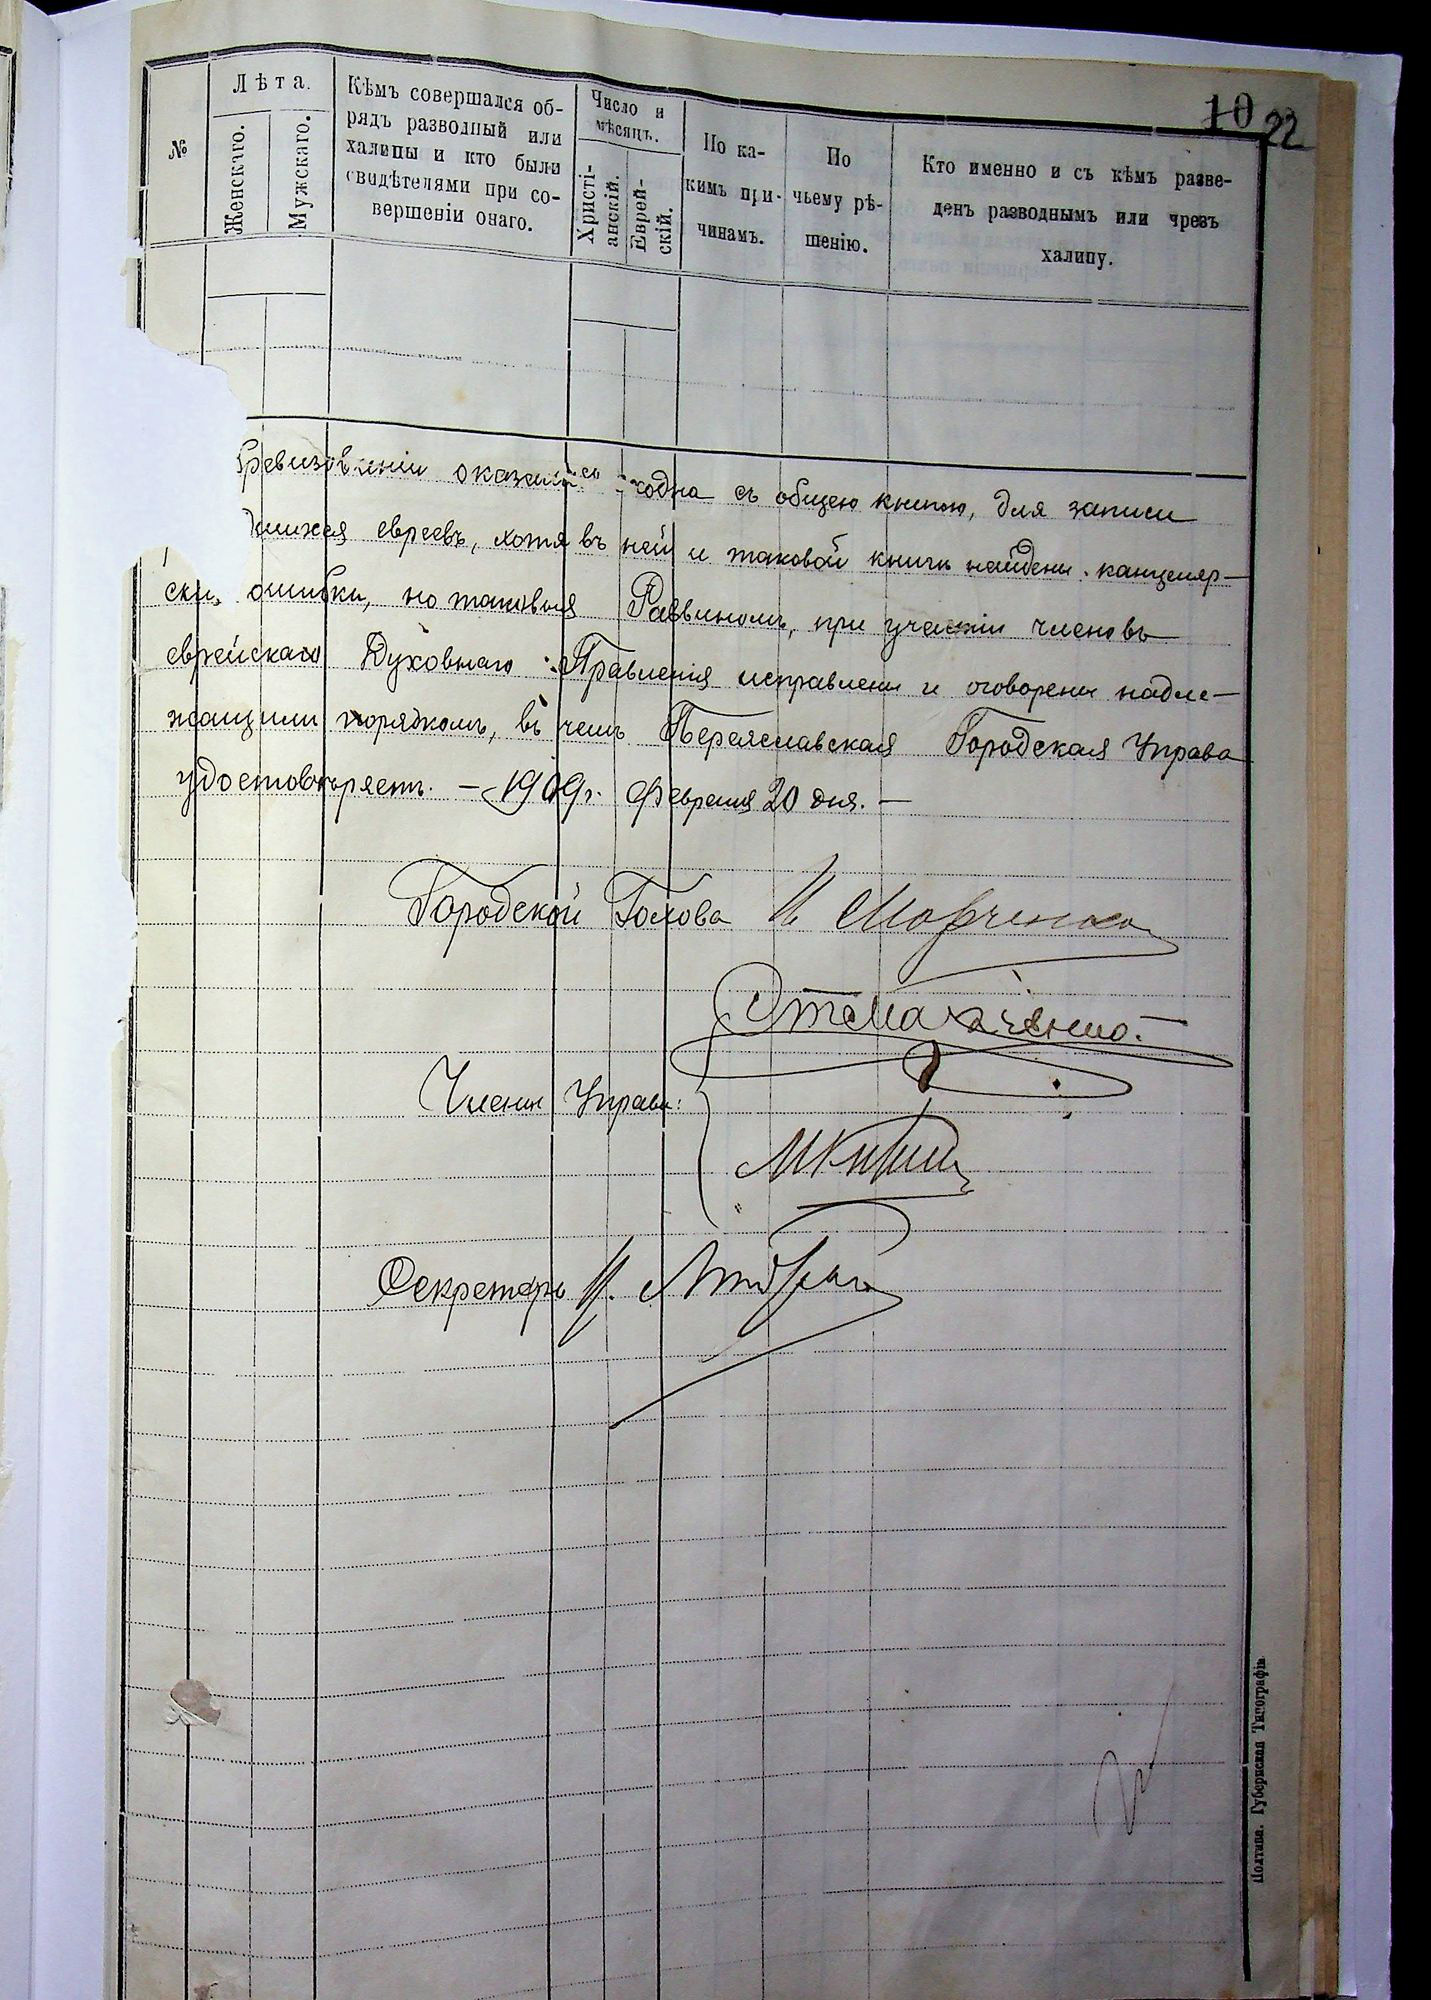 10 22
№
Лѣта.
Женскаго.
Мужскаго.
Кѣмъ совершался об-
рядъ разводный или
халипы и кто были
свидѣтелями при со-
вершеніи онаго.
Число и
мѣсяцъ.
Христі-
анскій.
Еврей-
скій.
По ка-
кимъ при-
чинамъ.
По
чьему рѣ-
шенію.
Кто именно и съ кѣмъ разве-
денъ разводнымъ или чрезъ
халипу.
ревизованіи оказалась сходна съ общею книгою, для записи
вшихся евреевъ, хотя въ ней и таковой книги найдены канцеляр-
скія ошибки, но таковыя Раввиномъ, при участіи членовъ
еврейскаго Духовнаго Правленія исправлены и оговорены надле-
жащимъ порядкомъ, въ чемъ Переяславская Городская Управа
удостовѣряетъ. — 1909 г. Февраля 20 дня. —
Городской Голова П Марченко
Члены Управы:
Секретарь
Полтава. Губернская Типографія